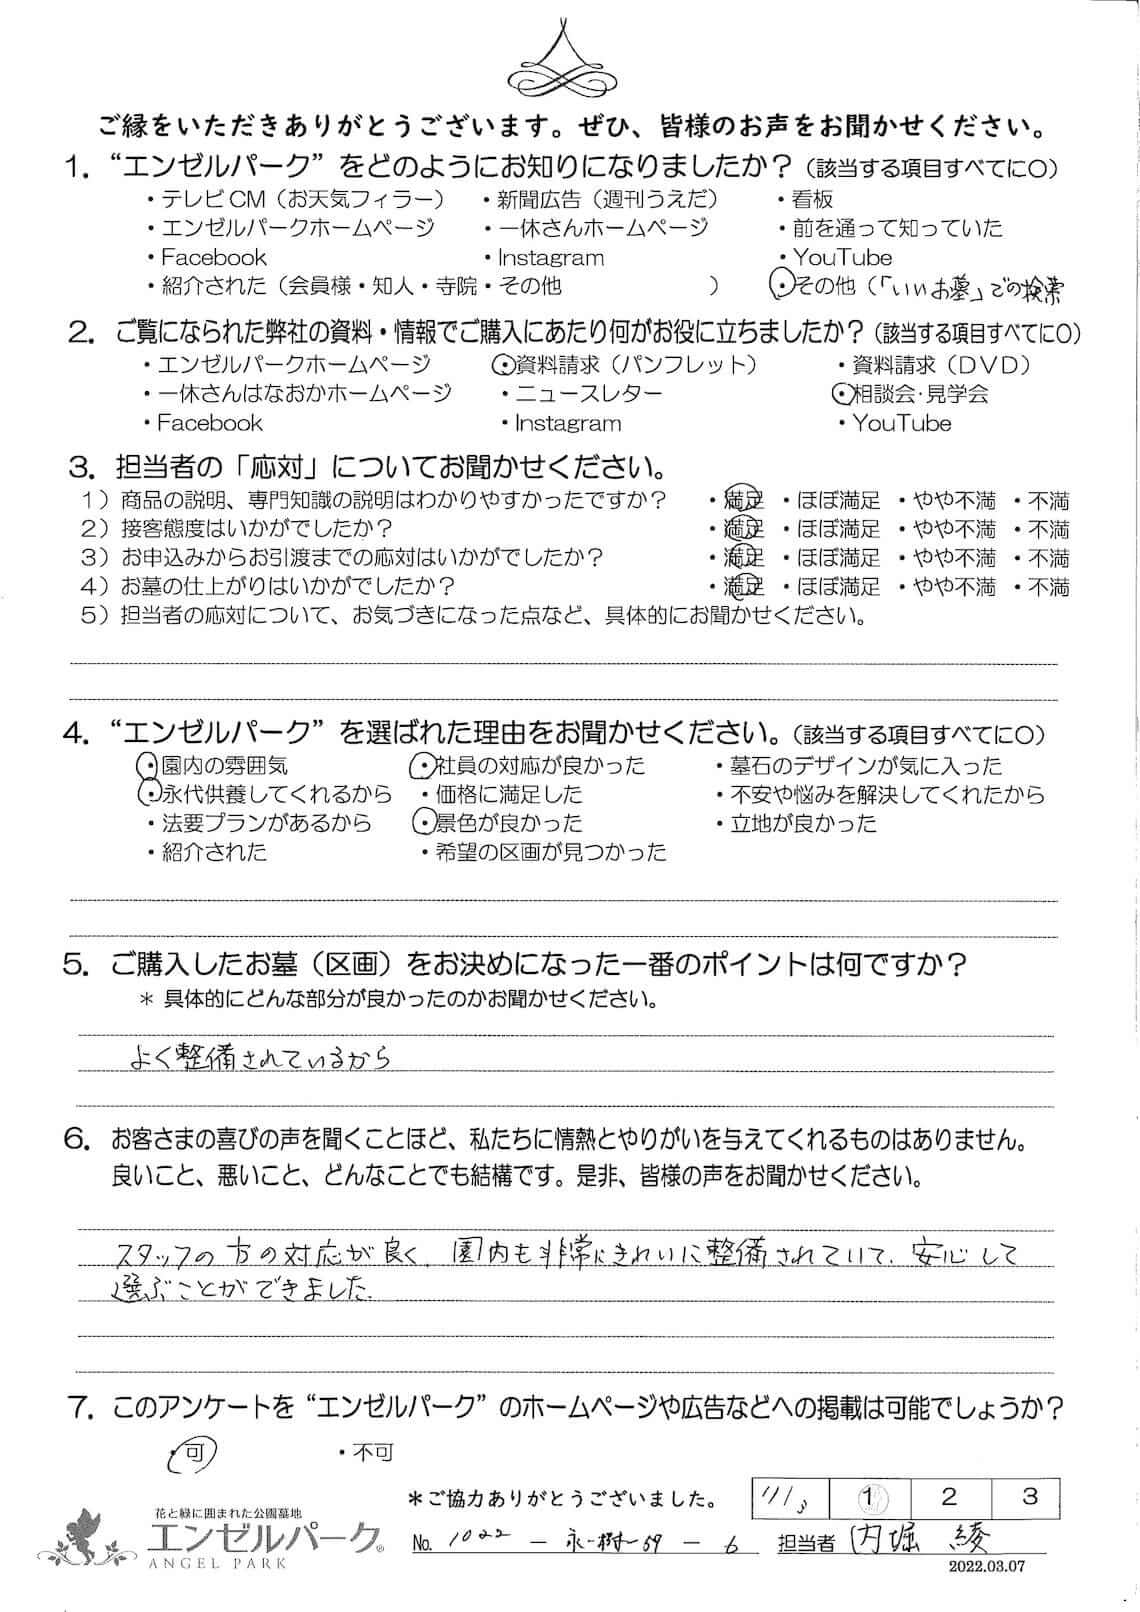 ご縁をいただきありがとうございます。ぜひ、皆様のお声をお聞かせください。
1．“エンゼルパーク”をどのようにお知りになりましたか？（該当する項目すべてに〇）
・テレビCM（お天気フィラー） ・新聞広告（週刊うえだ） ・看板
・エンゼルパークホームページ ・一休さんホームページ ・前を通って知っていた
・Facebook ・Instagram ・YouTube
・紹介された（会員様・知人・寺院・その他 ） ・その他（「いいお墓」での検索
2．ご覧になられた弊社の資料・情報でご購入にあたり何がお役に立ちましたか？（該当する項目すべてに〇）
・エンゼルパークホームページ ・資料請求（パンフレット） ・資料請求（DVD）
・一休さんはなおかホームページ ・ニュースレター ・相談会・見学会
・Facebook ・Instagram ・YouTube
3．担当者の「応対」についてお聞かせください。
1）商品の説明、専門知識の説明はわかりやすかったですか？ ・満足 ・ほぼ満足 ・やや不満 ・不満
2）接客態度はいかがでしたか？ ・満足 ・ほぼ満足 ・やや不満 ・不満
3）お申込みからお引渡までの応対はいかがでしたか？ ・満足 ・ほぼ満足 ・やや不満 ・不満
4）お墓の仕上がりはいかがでしたか？ ・満足 ・ほぼ満足 ・やや不満 ・不満
5）担当者の応対について、お気づきになった点など、具体的にお聞かせください。
4．“エンゼルパーク”を選ばれた理由をお聞かせください。（該当する項目すべてに〇）
・園内の雰囲気 ・社員の対応が良かった ・墓石のデザインが気に入った
・永代供養してくれるから ・価格に満足した ・不安や悩みを解決してくれたから
・法要プランがあるから ・景色が良かった ・立地が良かった
・紹介された ・希望の区画が見つかった
5．ご購入したお墓（区画）をお決めになった一番のポイントは何ですか？
＊ 具体的にどんな部分が良かったのかお聞かせください。
よく整備されているから
6．お客さまの喜びの声を聞くことほど、私たちに情熱とやりがいを与えてくれるものはありません。
良いこと、悪いこと、どんなことでも結構です。是非、皆様の声をお聞かせください。
スタッフの方の対応が良く、園内も非常にきれいに整備されていて、安心して
選ぶことができました。
7．このアンケートを“エンゼルパーク”のホームページや広告などへの掲載は可能でしょうか？
・可 ・不可
＊ご協力ありがとうございました。 11/3 1 2 3
花と緑に囲まれた公園墓地
エンゼルパーク®
ANGEL PARK
No. 1022 － 永-樹-59 － 6 担当者 内堀 綾
2022.03.07